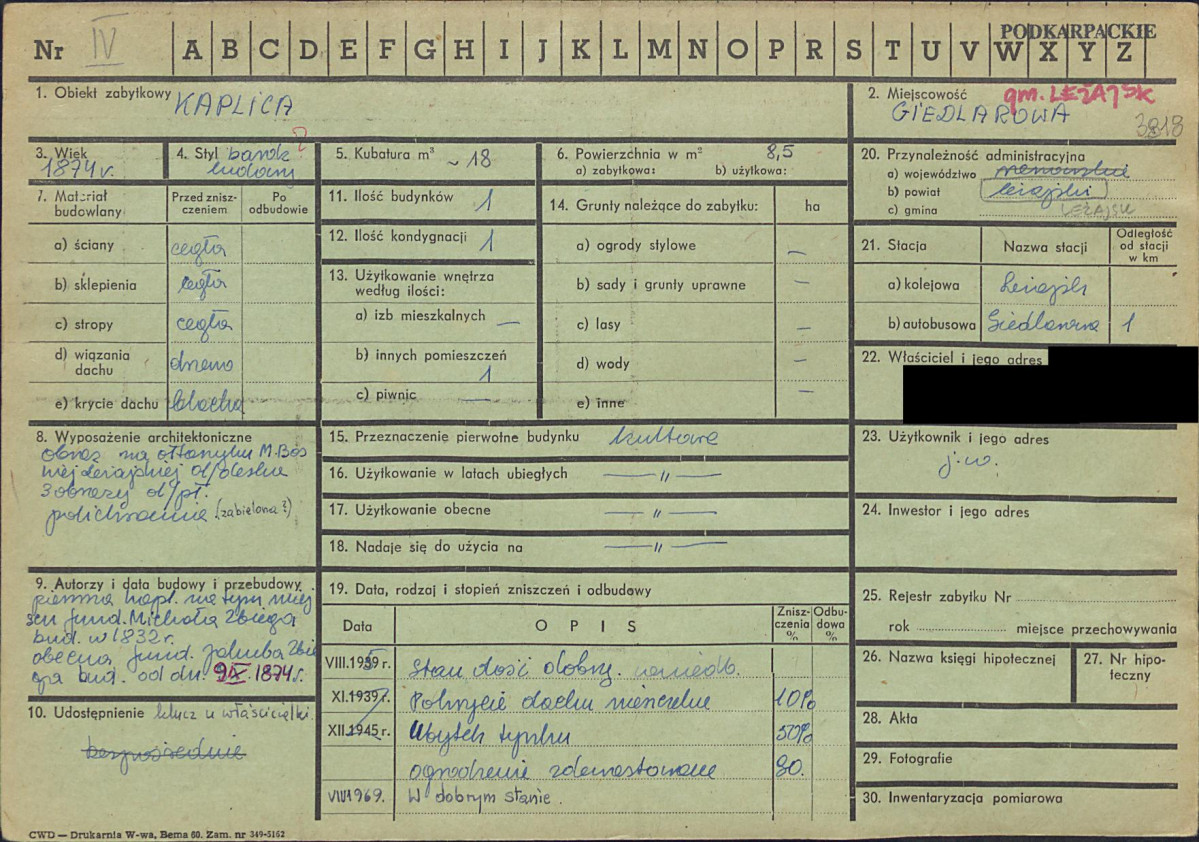 PODKARPACKIE
Nr IV A B C D E F G H I J K L M N O P R S T U V W X Y Z
1. Obiekt zabytkowy KAPLICA
2. Miejscowość gm. LEŻAJSK
GIEDLAROWA
3818
3. Wiek
1874 r.
4. Styl barok ?
ludowy
5. Kubatura m³ ~ 18
6. Powierzchnia w m² 8,5
a) zabytkowa: b) użytkowa:
7. Materiał budowlany
Przed zniszczeniem
Po odbudowie
a) ściany cegła
b) sklepienia cegła
c) stropy cegła
d) wiązania dachu drzewo
e) krycie dachu blacha
8. Wyposażenie architektoniczne
obraz na ołtarzyku M. Bos
kiej Leżajskiej ol/deska
3 obrazy ol/pł.
polichromia (zabielona?)
9. Autorzy i data budowy i przebudowy
pierwsza kapl. na tym miej
scu fund. Michała Zbiega
bud. w 1832 r.
obecna fund. Jakuba Zbie
ga bud. od dn. 9 IX. 1874 r.
10. Udostępnienie klucz u właścicielki.
bezpośrednie
11. Ilość budynków 1
12. Ilość kondygnacji 1
13. Użytkowanie wnętrza
według ilości:
a) izb mieszkalnych —
b) innych pomieszczeń
1
c) piwnic —
14. Grunty należące do zabytku: ha
a) ogrody stylowe —
b) sady i grunty uprawne —
c) lasy —
d) wody —
e) inne —
15. Przeznaczenie pierwotne budynku kultowe
16. Użytkowanie w latach ubiegłych — „ —
17. Użytkowanie obecne — „ —
18. Nadaje się do użycia na — „ —
19. Data, rodzaj i stopień zniszczeń i odbudowy
Data
O P I S
Zniszczenia %
Odbudowa %
VIII.1939 r. Stan dość dobry. zaniedb.
XI.1939 r. Pokrycie dachu nieszczelne 10%
XII.1945 r. Ubytek tynku 50%
ogrodzenie zdewastowane 90.
VIII 1969. W dobrym stanie.
20. Przynależność administracyjna
a) województwo rzeszowskie
b) powiat leżajski
c) gmina LEŻAJSK
21. Stacja
Nazwa stacji
Odległość od stacji w km
a) kolejowa Leżajsk
b) autobusowa Giedlarowa 1
22. Właściciel i jego adres
23. Użytkownik i jego adres
j.w.
24. Inwestor i jego adres
25. Rejestr zabytku Nr
rok miejsce przechowywania
26. Nazwa księgi hipotecznej
27. Nr hipoteczny
28. Akta
29. Fotografie
30. Inwentaryzacja pomiarowa
CWD — Drukarnia W-wa, Bema 60. Zam. nr 349-5162